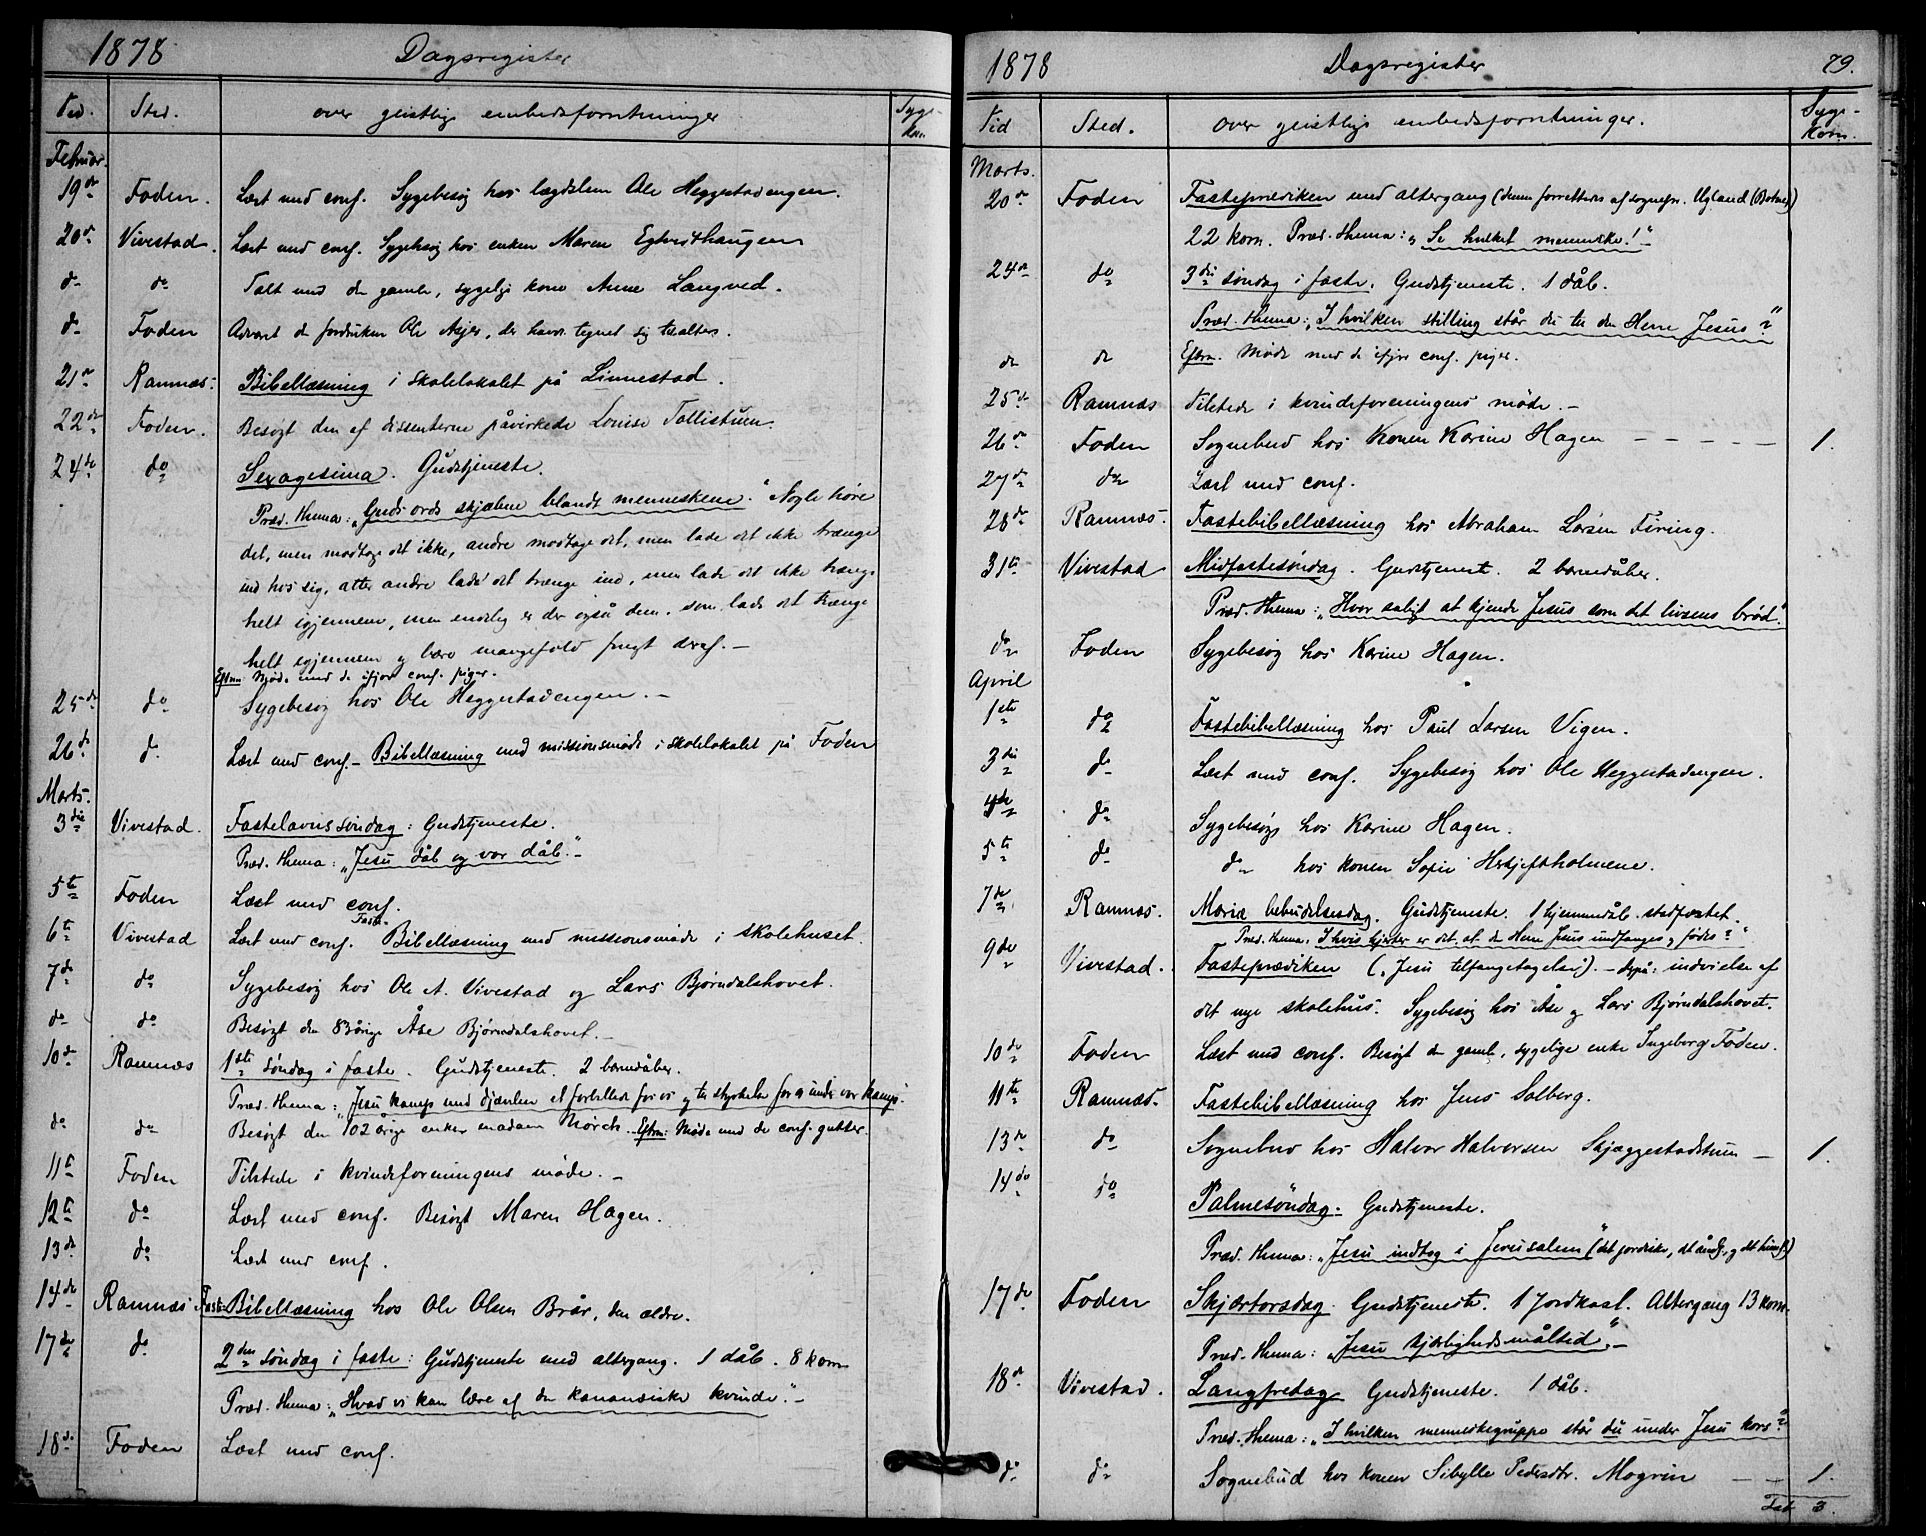 1878 Dagsregister
Tid. Sted. over geistlige embedsforretninger Syge-
kom.
Februar.
19de Foden. Læst med conf. Sygebesøg hos lægdslem Ole Heggestadengen.
20de Vivestad. Læst med conf. Sygebesøg hos enken Maren
do do Talt med de gamle, sygelige kone Anne Langved.
do Foden Advaret de fordrukne Ole Asjer, der havde tegnet sig til alters.
21de Ramnæs. Bibellæsning i skolelokalet på Linnestad.
22de Foden. Besøgt den af dissenterne påvirkede Louise Tollistuen.
24de do Sexagesima. Gudstjeneste.
Præd. thema: „Guds ords skjæbne blandt menneskene." Nogle høre
det, men modtage det ikke, andre modtage det, men lade det ikke trænge
ind hos sig, atter andre lade det trænge ind, men lade det ikke trænge
helt igjennem, men endelig er der også dem, som lade det trænge
helt igjennem og bære mangefold frugt deraf.-
Eftm: Møde med de ifjor conf. piger.
25de do Sygebesøg hos Ole Heggestadengen.-
26de do Læst med conf.- Bibellæsning med missionsmøde i skolelokalet på Foden
Marts.
3die Vivestad. Fastelavnssøndag: Gudstjeneste.
Præd. thema: „Jesu dåb og vor dåb."-
5te Foden Læst med conf.
Faste-
6te Vivestad Læst med conf. Bibellæsning med missionsmøde i skolehuset.
7de do Sygebesøg hos Ole A. Vivestad og Lars Bjørndalshovet.
do do Besøgt den 83årige Åse Bjørndalshovet.-
10de Ramnæs 1ste søndag i faste. Gudstjeneste. 2 barnedåber.
Præd. thema: „Jesu kamp med djævlen et forbillede for os og til styrkelse for os under vor kamp.
do do Besøgt den 102 årige enken madam Mörch.- Eftm: Møde med de conf. gutter.
11te Foden Tilstede i kvindeforeningens møde.-
12te do Læst med conf. Besøgt Maren Hagen.
13de do Læst med conf.
14de Ramnæs Faste-Bibellæsning hos Ole Olsen Brår, den ældre.
17de do 2den søndag i faste: Gudstjeneste med altergang. 1 dåb. 8 kom
Præd. thema: „Hvad vi kan lære af den kananæiske kvinde."-
18de Foden Læst med conf.
1878 Dagsregister 79.
Tid Sted. over geistlige embedsforretninger. Syge-
kom.
Marts.
20de Foden Fasteprædiken med altergang (denne forrettedes af sognepr. Ugland (Botne))
22 kom. Præd. thema: „Se hvilket menneske!"-
24de do 3die søndag i faste. Gudstjeneste. 1 dåb.
Præd. thema: „I hvilken stilling står du til den Herre Jesus?"
do do Eftm. Møde med de ifjor conf. piger.
25de Ramnæs Tilstede i kvindeforeningens møde.-
26de Foden Sognebud hos konen Karine Hagen - - - - - 1.
27de do Læst med conf.
28de Ramnæs. Fastebibellæsning hos Abraham Larsen Firing.
31te Vivestad Midfastesøndag. Gudstjeneste. 2 barnedåber.
Præd. thema: „Hvor saligt at kjende Jesus som det livsens brød."
do Foden Sygebesøg hos Karine Hagen.
April
1ste do Fastebibellæsning hos Paul Larsen Vigen.
3die do Læst med conf. Sygebesøg hos Ole Heggestadengen.
4de do Sygebesøg hos Karine Hagen.
5te do do hos konen Sofie
7de Ramnæs. Mariæ bebudelsesdag. Gudstjeneste. 1 hjemmedåb stadfæstet.
Præd. thema: I hvis hjerter er det, at den Herre Jesus undfanges og fødes?"
9de Vivestad. Fasteprædiken („Jesu tilfangetagelse). - Derpå: indvielse af
det nye skolehus. Sygebesøg hos Åse og Lars Bjørndalshovet.
10de Foden Læst med conf. Besøgt den gamle, sygelige enke Ingeborg Foden.
11te Ramnæs. Fastebibellæsning hos Jens Solberg.
13de do Sognebud hos Halvor Halvorsen Skjæggestadstuen - 1.
14de do Palmesöndag. Gudstjeneste.
Præd. thema: „Jesu indtog i Jerusalem" (det jordiske, det åndl. og det himl.)
17de Foden Skjærtorsdag. Gudstjeneste. 1 Jordkast. Altergang 13 kom.
Præd. thema: „Jesu kjærlighedsmåltid".-
18de Vivestad. Langfredag. Gudstjeneste. 1 dåb.
Præd. thema: „I hvilken menneskegruppe står du under Jesu kors?"
do do Sognebud hos konen Sibylle Pedersdtr. Mogrin - - 1.
Lat. 3.